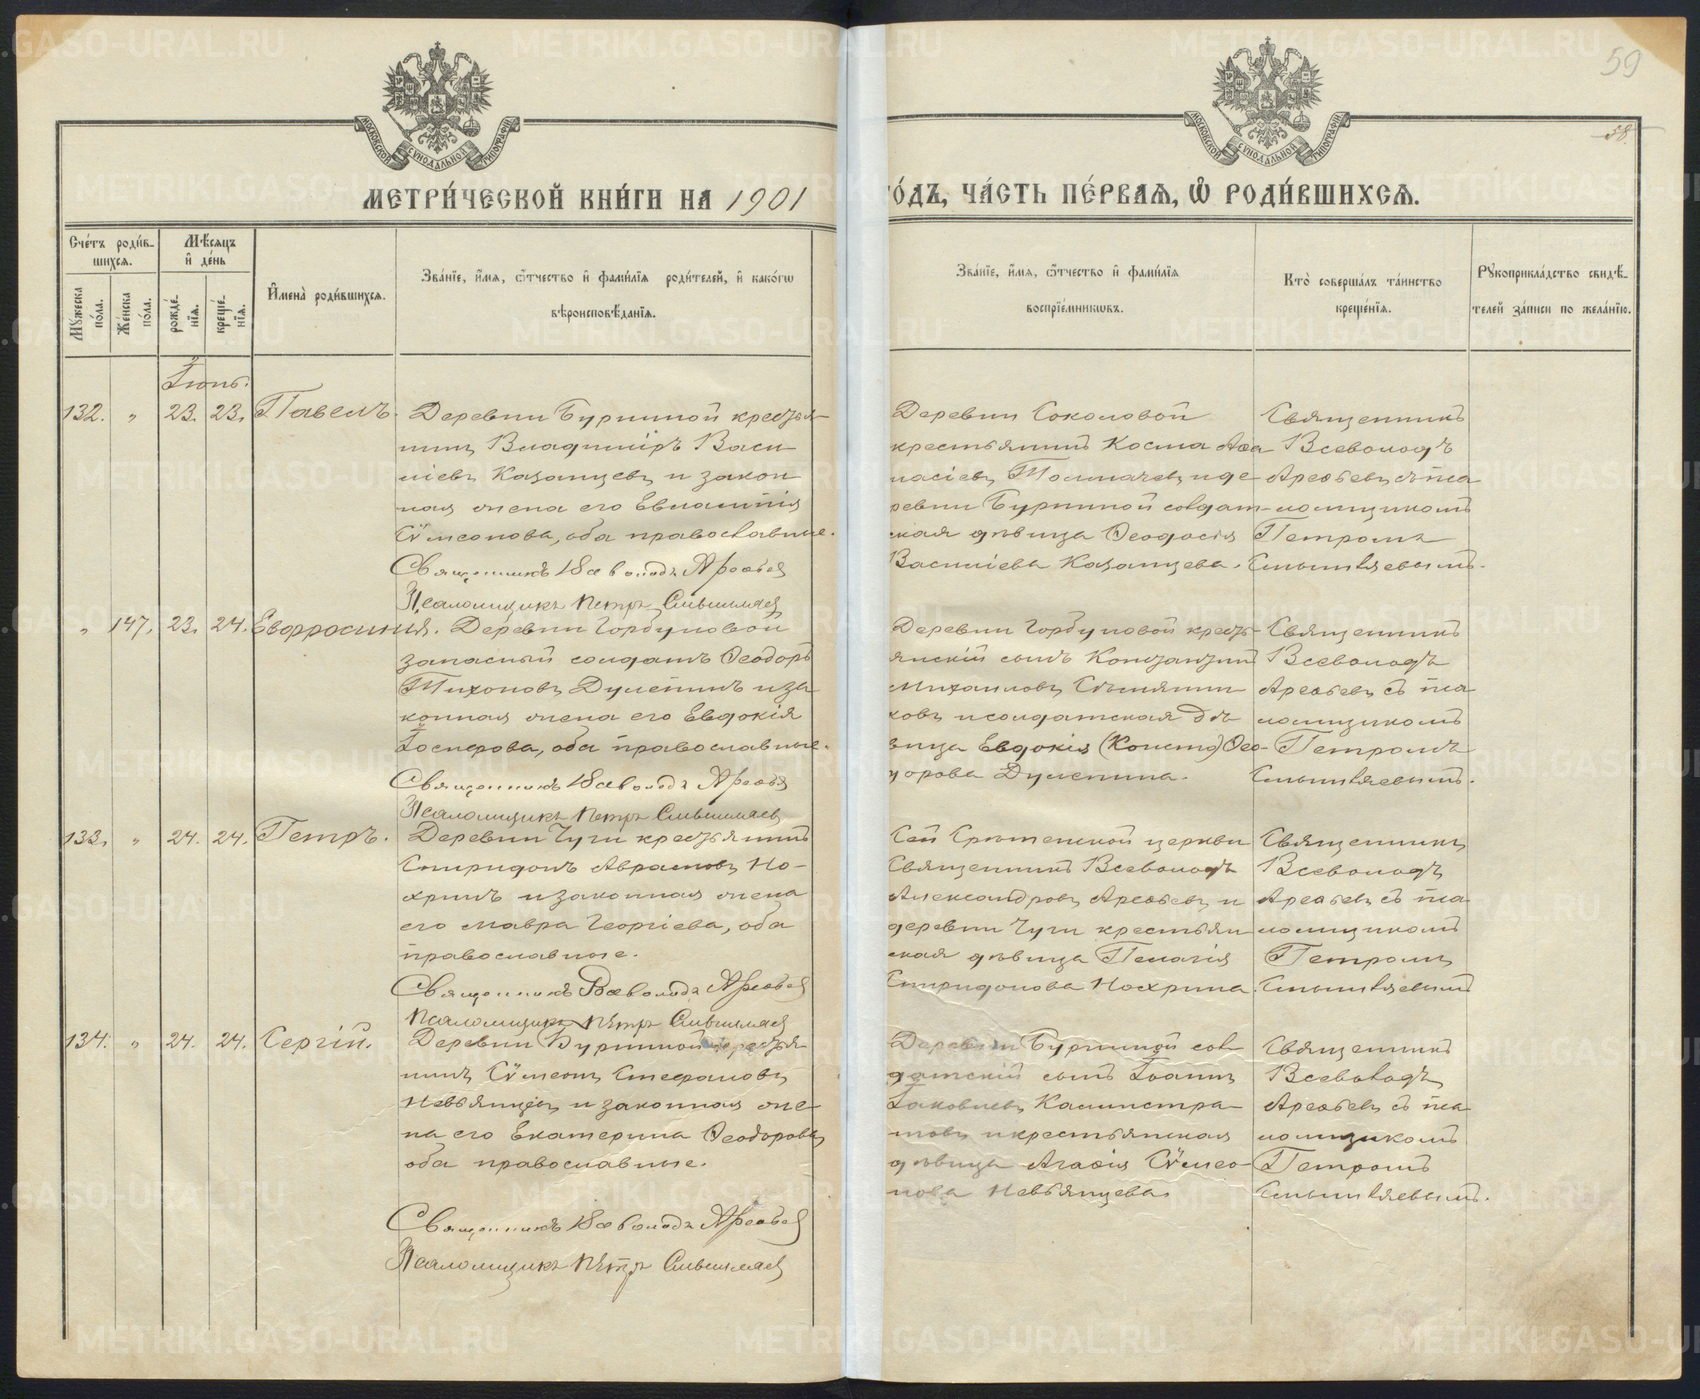 59
58.
МЕТРИ́ЧЕСКОЙ КНИ́ГИ НА 1901
ГО́ДЪ, ЧА́СТЬ ПЕ́РВАѦ, Ѽ РОДИ́ВШИХСѦ.
Сче́тъ роди́в-
шихся.
Мꙋ́жеска по́ла.
Же́нска по́ла.
Мѣ́сяцъ
и҆ де́нь
рожде́нїя.
креще́нїя.
И҆мена̀ роди́вшихся.
Зва́нїе, и҆́мя, ѻ҆́тчество и҆ фами́лїя роди́телей, и҆ како́гѡ
вѣроисповѣ́данїя.
Зва́нїе, и҆́мя, ѻ҆́тчество и҆ фами́лїя
воспрїе́мникѡвъ.
Кто̀ соверша́лъ та́инство
креще́нїя.
Рꙋкоприкла́дство свидѣ́-
телей за́писи по жела́нїю.
Іюнь.
132. " 23. 23. Павелъ.
Деревни Буриной крестья-
нинъ Владиміръ Васи
ліевъ Казанцевъ и закон
ная жена его Евлампія
Сѵмеонова, оба православные.
Священникъ Всеволодъ Арефьев
Псаломщикъ Петръ Смышляев
Деревни Соколовой
крестьянинъ Косма Аѳа
насіевъ Толмачевъ и де
ревни Буриной солдат-
ская дѣвица Ѳеодосія
Василіева Казанцева.
Священникъ
Всеволодъ
Арефьевъ съ пса
ломщикомъ
Петромъ
Смышляевымъ.
" 147. 23. 24. Евфросинія.
Деревни Горбуновой
запасный солдатъ Ѳеодоръ
Тихоновъ Дулепинъ и за
конная жена его Евдокія
Іосифова, оба православные.
Священникъ Всеволодъ Арефьев
Псаломщикъ Петръ Смышляев
Деревни Горбуновой кресть-
янскій сынъ Константинъ
Михаиловъ
ковъ и солдатская дѣ
вица Евдокія Ѳео-
дорова Дулепина.
Священникъ
Всеволодъ
Арефьевъ съ пса
ломщикомъ
Петромъ
Смышляевымъ.
133. " 24. 24. Петръ.
Деревни Чуги крестьянинъ
Спиридонъ Аврамовъ Но-
хринъ и законная жена
его Мавра Георгіева, оба
православные.
Священникъ Всеволодъ Арефьев
Псаломщикъ Петръ Смышляев
Сей Срѣтенской церкви
Священникъ Всеволодъ
Александровъ Арефьевъ и
деревни Чуги крестьян
ская дѣвица Пелагія
Спиридонова Нохрина.
Священникъ
Всеволодъ
Арефьевъ съ пса
ломщикомъ
Петромъ
Смышляевымъ
134. " 24. 24. Сергій.
Деревни Буриной крестья
нинъ Сѵмеонъ Стефановъ
Невьянцевъ и законная же
на его Екатерина Ѳеодорова,
оба православные.
Священникъ Всеволодъ Арефьев
Псаломщикъ Петръ Смышляев
Деревни Буриной сол
датскій сынъ Іоаннъ
Іаковлевъ Калистра
товъ и крестьянская
дѣвица Агафія Сѵмео-
нова Невьянцева.
Священникъ
Всеволодъ
Арефьевъ съ пса
ломщикомъ
Петромъ
Смышляевымъ.
METRIKI.GASO-URAL.RU